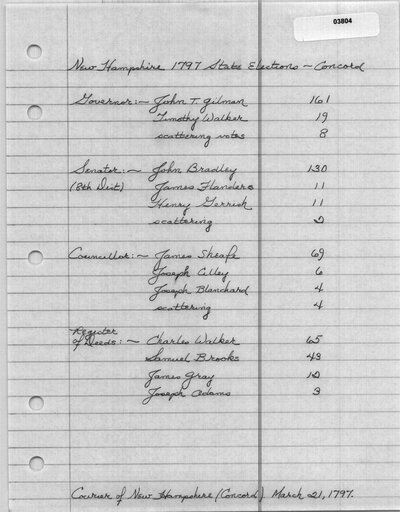 03804
New Hampshire 1797 State Elections ~ Concord
Governor: ~ John T. Gilman 161
Timothy Walker 19
scattering votes 8
Senator: ~ John Bradley 130
(8th Dist) James Flanders 11
Henry Gerrish 11
scattering 2
Councillor: ~ James Sheafe 69
Joseph Cilley 6
Joseph Blanchard 4
scattering 4
Register
of Deeds: ~ Charles Walker 65
Samuel Brooks 43
James Gray 12
Joseph Adams 3
Courier of New Hampshire (Concord) March 21, 1797.